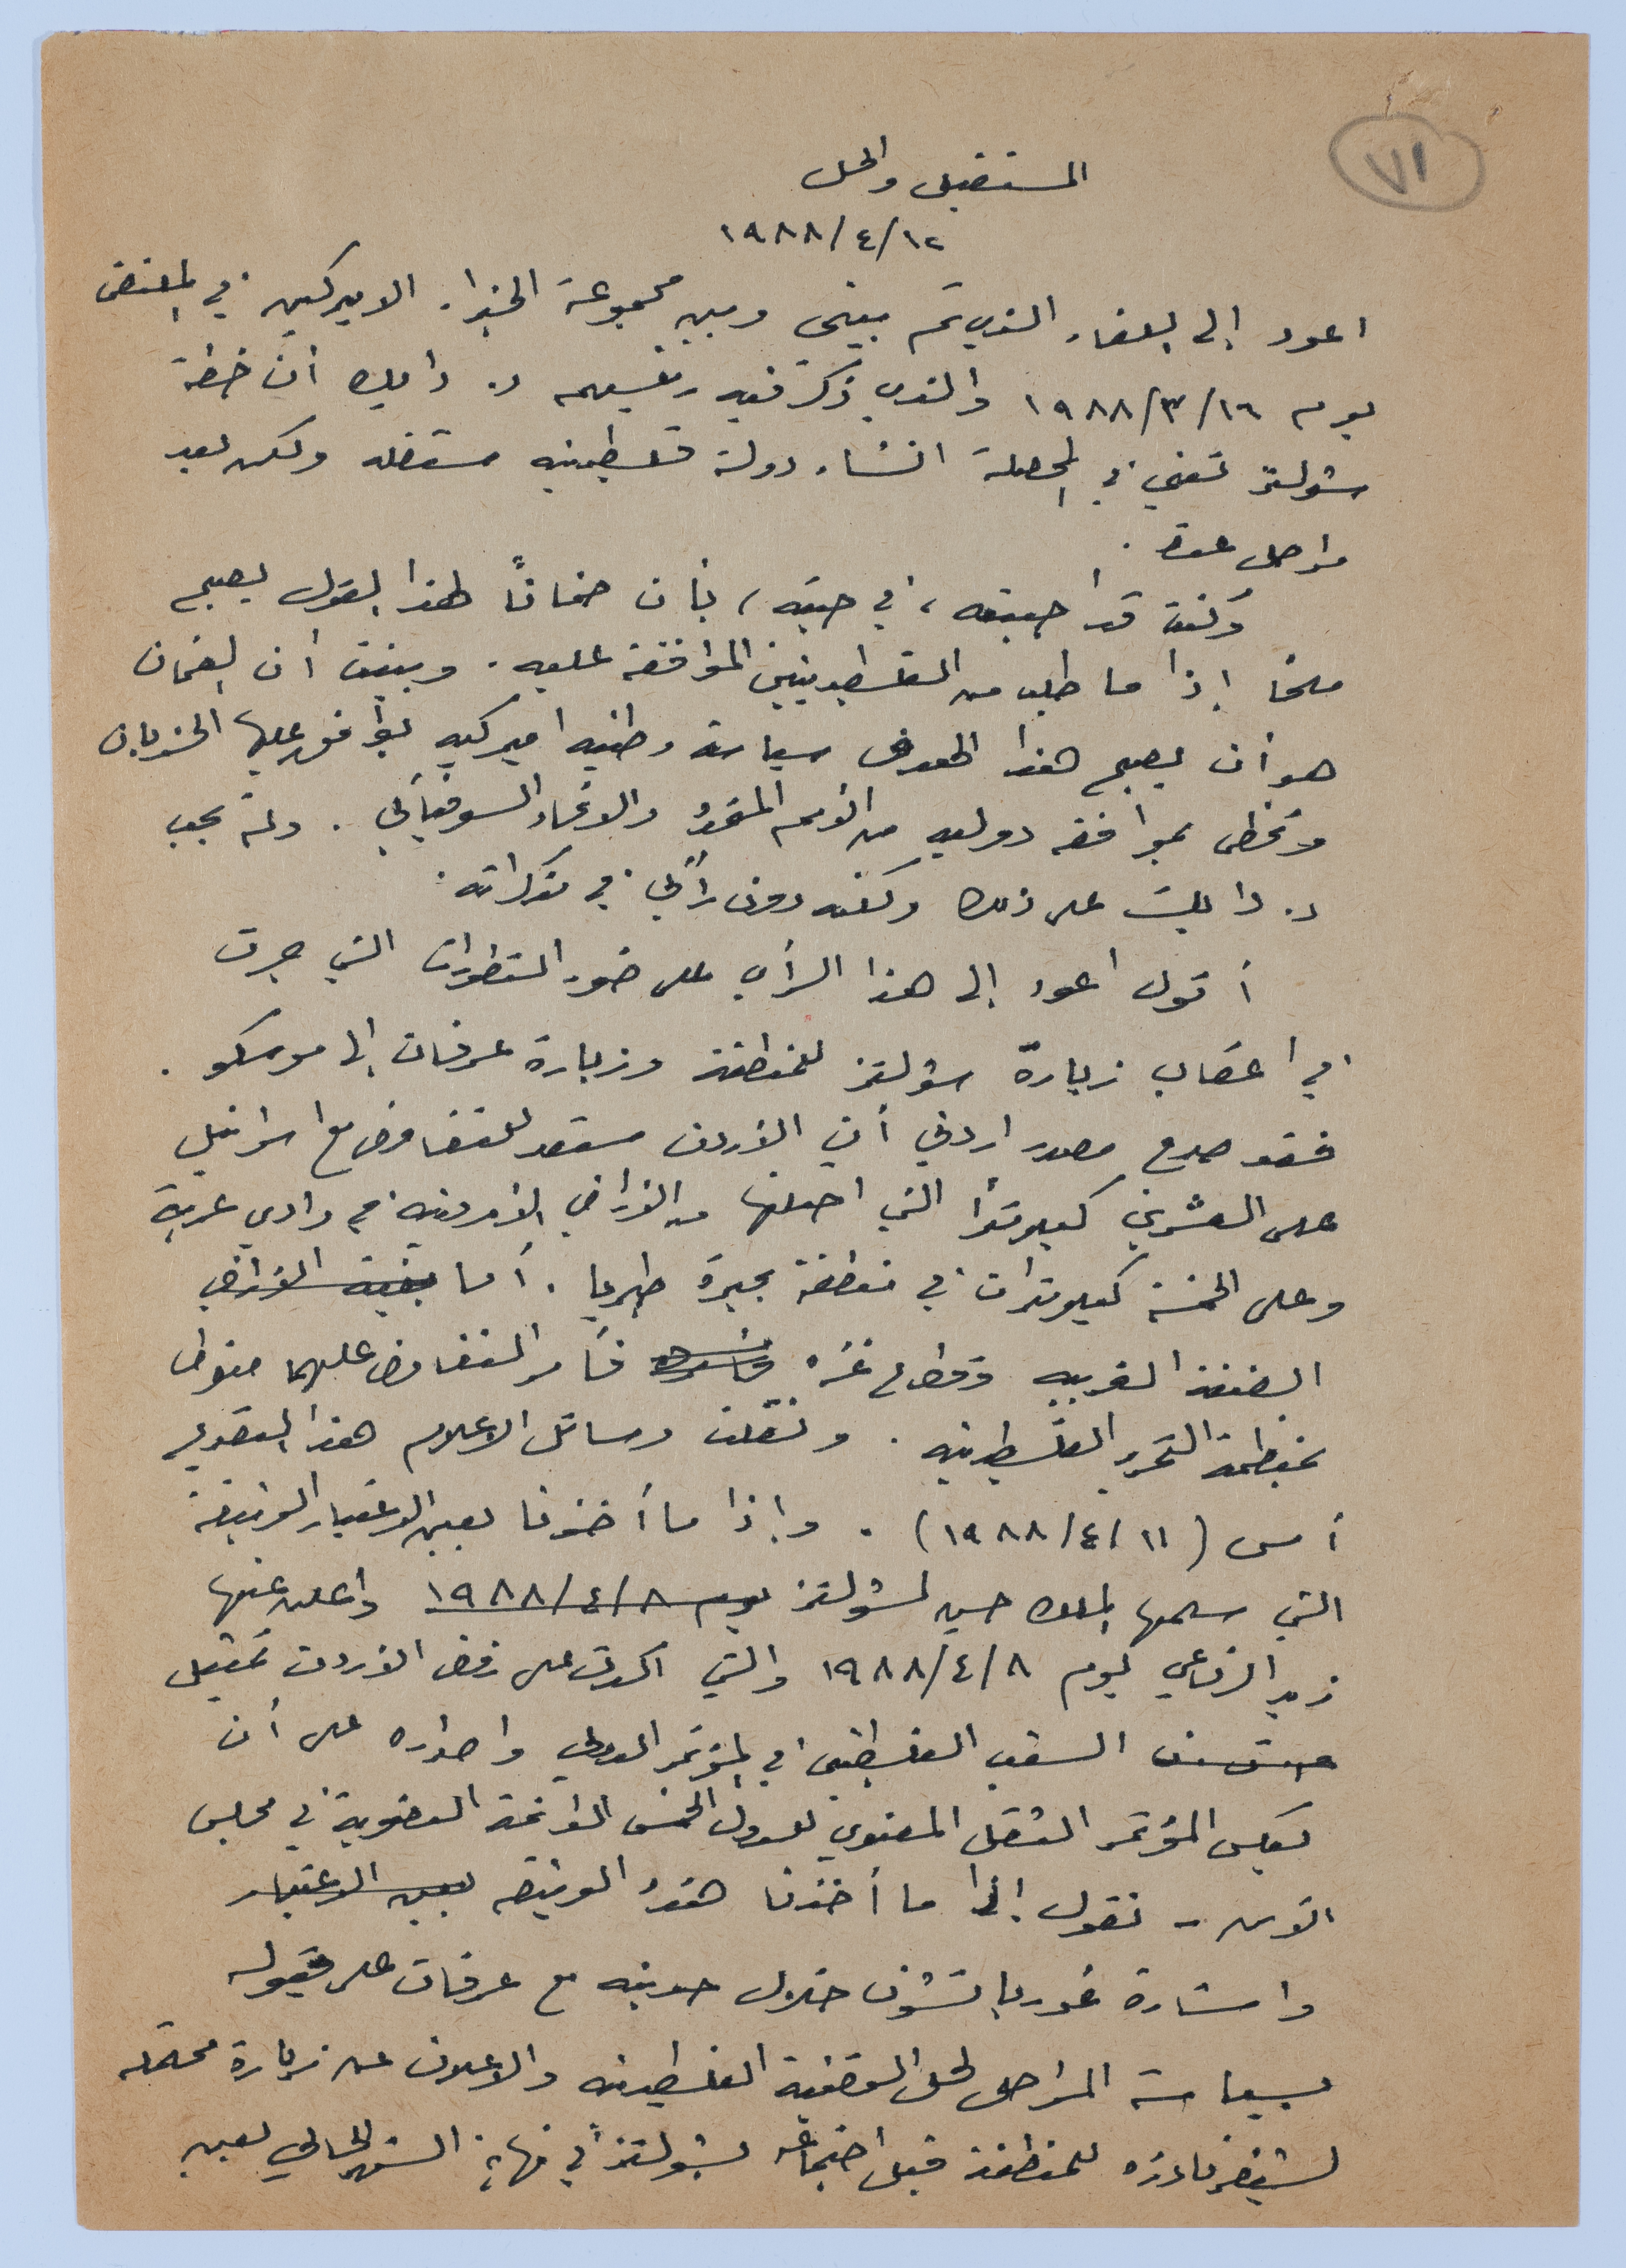 ٧١
المستقبل والحل
١٩٨٨/٤/١٢
اعود إلى اللقاء الذي تم بيني وبين مجموعة الخبراء الاميركيين في المقتضى
يوم ١٩٨٨/٣/١٦ والذي ذكر فيه رئيسهم د. دايك أن خطة
شولتز تعني في المحصلة انشاء دولة فلسطينيه مستقله ولكن بعد
مراحل عدة.
وكنت قد اجبته، في حينه، بأن ضمانًا لهذا القول يصبح
ملحًا إذا ما طلب من الفلسطينيين الموافقة عليه. وبينت أن الضمان
هو أن يصبح هذا الهدف سياسة وطنيه اميركيه يوافق عليها الحزبان
وتحظى بموافقه دوليه من الامم المتحدة والاتحاد السوفياتي. ولم يجب
د. دايك على ذلك ولكنه دون رأيي في مذكراته.
أقول اعود إلى هذا الرأي على ضوء التطورات التي جرت
في اعقاب زيارة شولتز للمنطقة وزيارة عرفات إلى موسكو.
فقد صرح مصدر اردني أن الأردن مستعد للتفاوض مع اسرائيل
على العشرين كيلومترًا التي احتلتها من الأراضي الأردنية في وادي عربة
وعلى الخمسة كيلومترات في منطقة بحيرة طبريا. أما بقية الأراضي
الضفة الغربيه وقطاع غزه فأمر التفاوض عليهما منوط
بمنظمة التحرير الفلسطينيه. ونقلت وسائل الاعلام هذا التصريح
أمس (١٩٨٨/٤/١١). وإذا ما أخذنا بعين الاعتبار الوثيقة
التي سلمها الملك حسين لشولتز يوم ١٩٨٨/٤/٨ واعلن عنها
زيد الرفاعي يوم ١٩٨٨/٤/٨ والتي اكدت على رفض الأردن تمثيل
الشعب الفلسطيني في المؤتمر الدولي واصراره على أن
يعكس المؤتمر الثقل المعنوي للدول الخمس الدائمة العضوية في مجلس
الأمن - نقول إذا ما أخذنا هذه الوثيقه بعين الاعتبار
واشارة غورباتشوف خلال حديثه مع عرفات على قبوله
بسياسة المراحل لحل القضية الفلسطينيه والاعلان عن زيارة محتمله
لشيفرنادزه للمنطقة قبل اجتماعه بشولتز في نهاية الشهر الحالي بعين